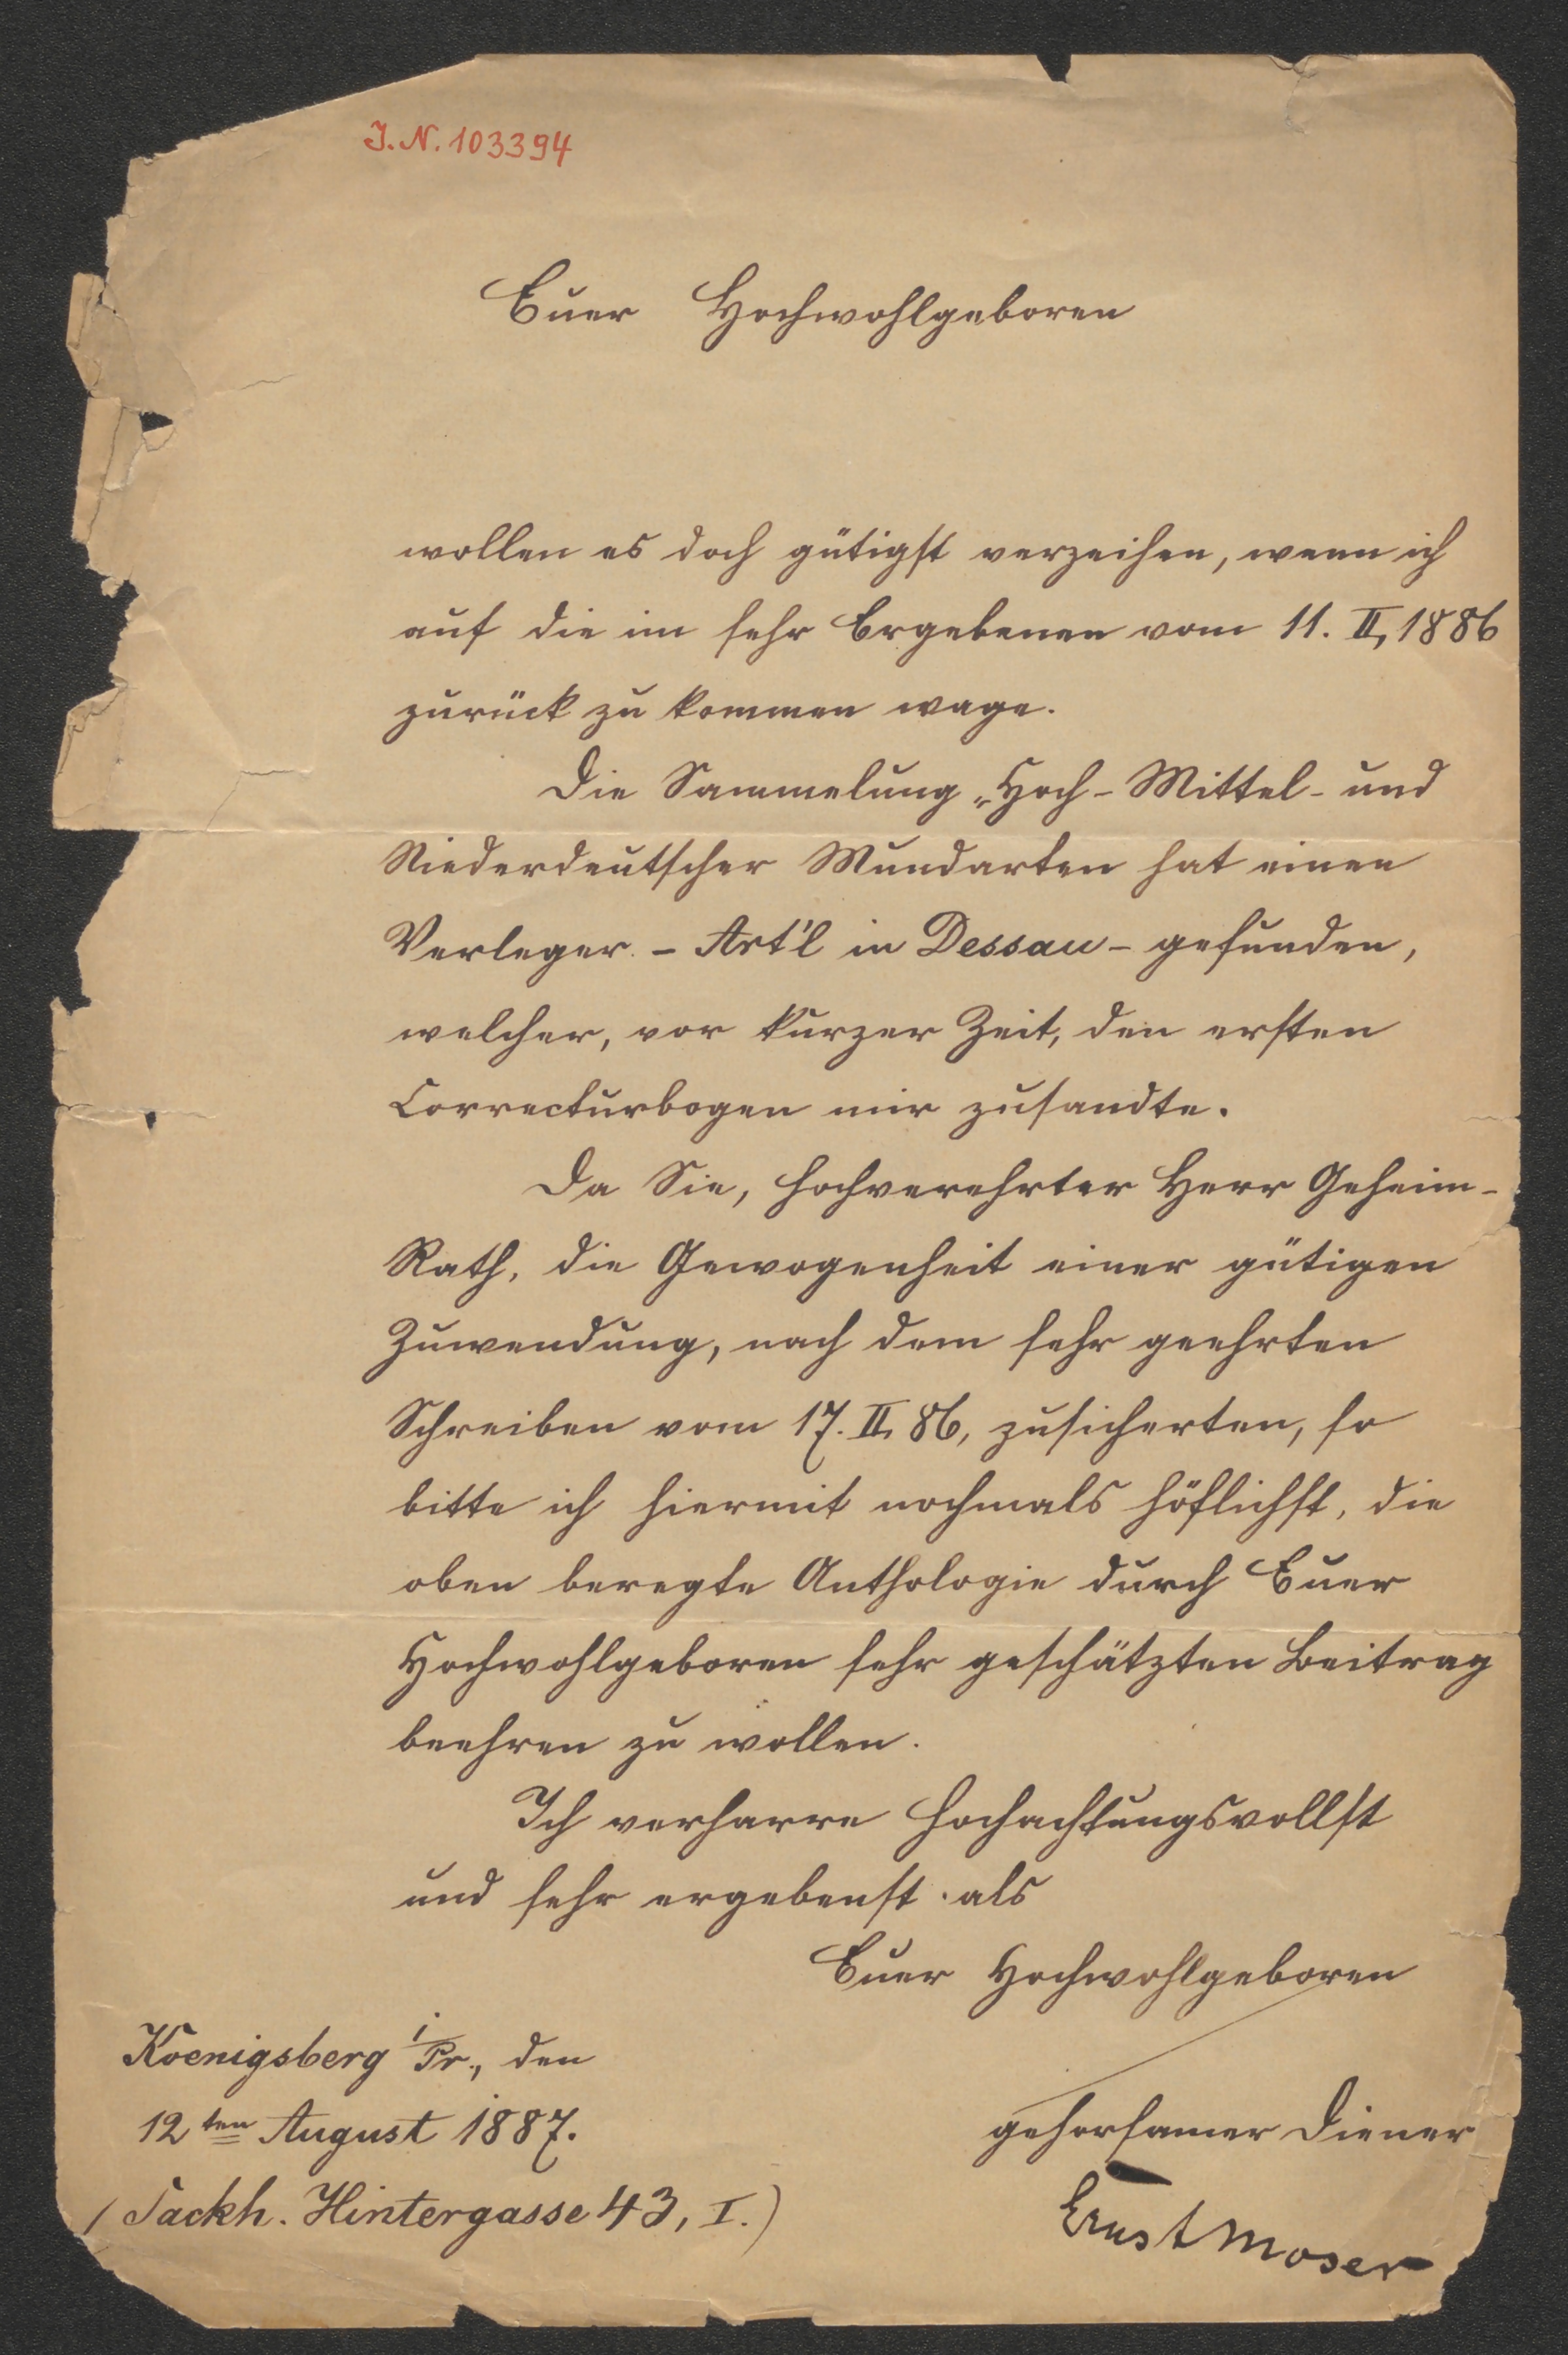 J. N. 103394
Euer Hochwohlgeboren
wollen es doch gütigst verzeihen, wenn ich
auf die im sehr Ergebenen vom 11. II, 1886
zurück zu kommen wage.
Die Sammelung „Hoch- Mittel- und
Niederdeutscher Mundarten hat einen
Verleger. - Art'l in Dessau - gefunden,
welcher, vor kurzer Zeit, den ersten
Correcturbogen mir zusandte.
Da Sie, hochverehrter Herr Geheim-
Rath, die Gewogenheit einer gütigen
Zuwendung, nach dem sehr geehrten
Schreiben vom 17. II. 86, zusicherten, so
bitte ich hiermit nochmals höflichst, die
oben beregte Anthologie durch Euer
Hochwohlgeboren sehr geschätzten Beitrag
beehren zu wollen.
Ich verharre hochachtungsvollst
und sehr ergebenst. als
Euer Hochwohlgeboren
Koenigsberg i/Pr., den
12ten August 1887.
gehorsamer Diener
(Sackh. Hintergasse 43, I.)
Ernst Moser